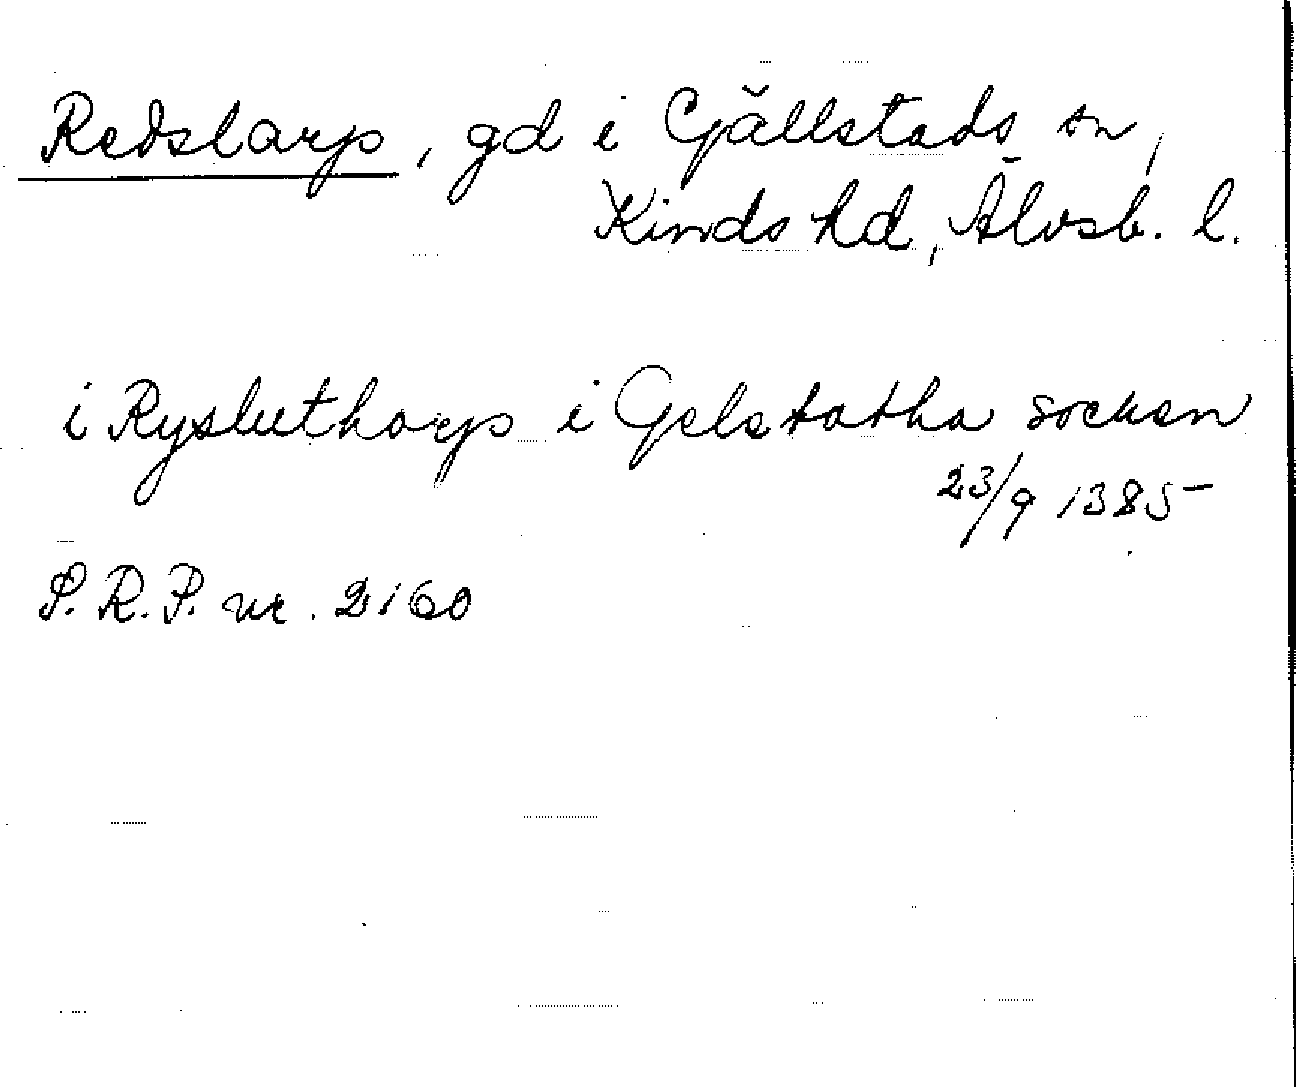 Redslarp, gd i Gällstads sn,
Kinds hd, Älvsb. l.
i Rysluthorp i Gelstatha socken
23/9 1385
S. R. P. nr. 2160